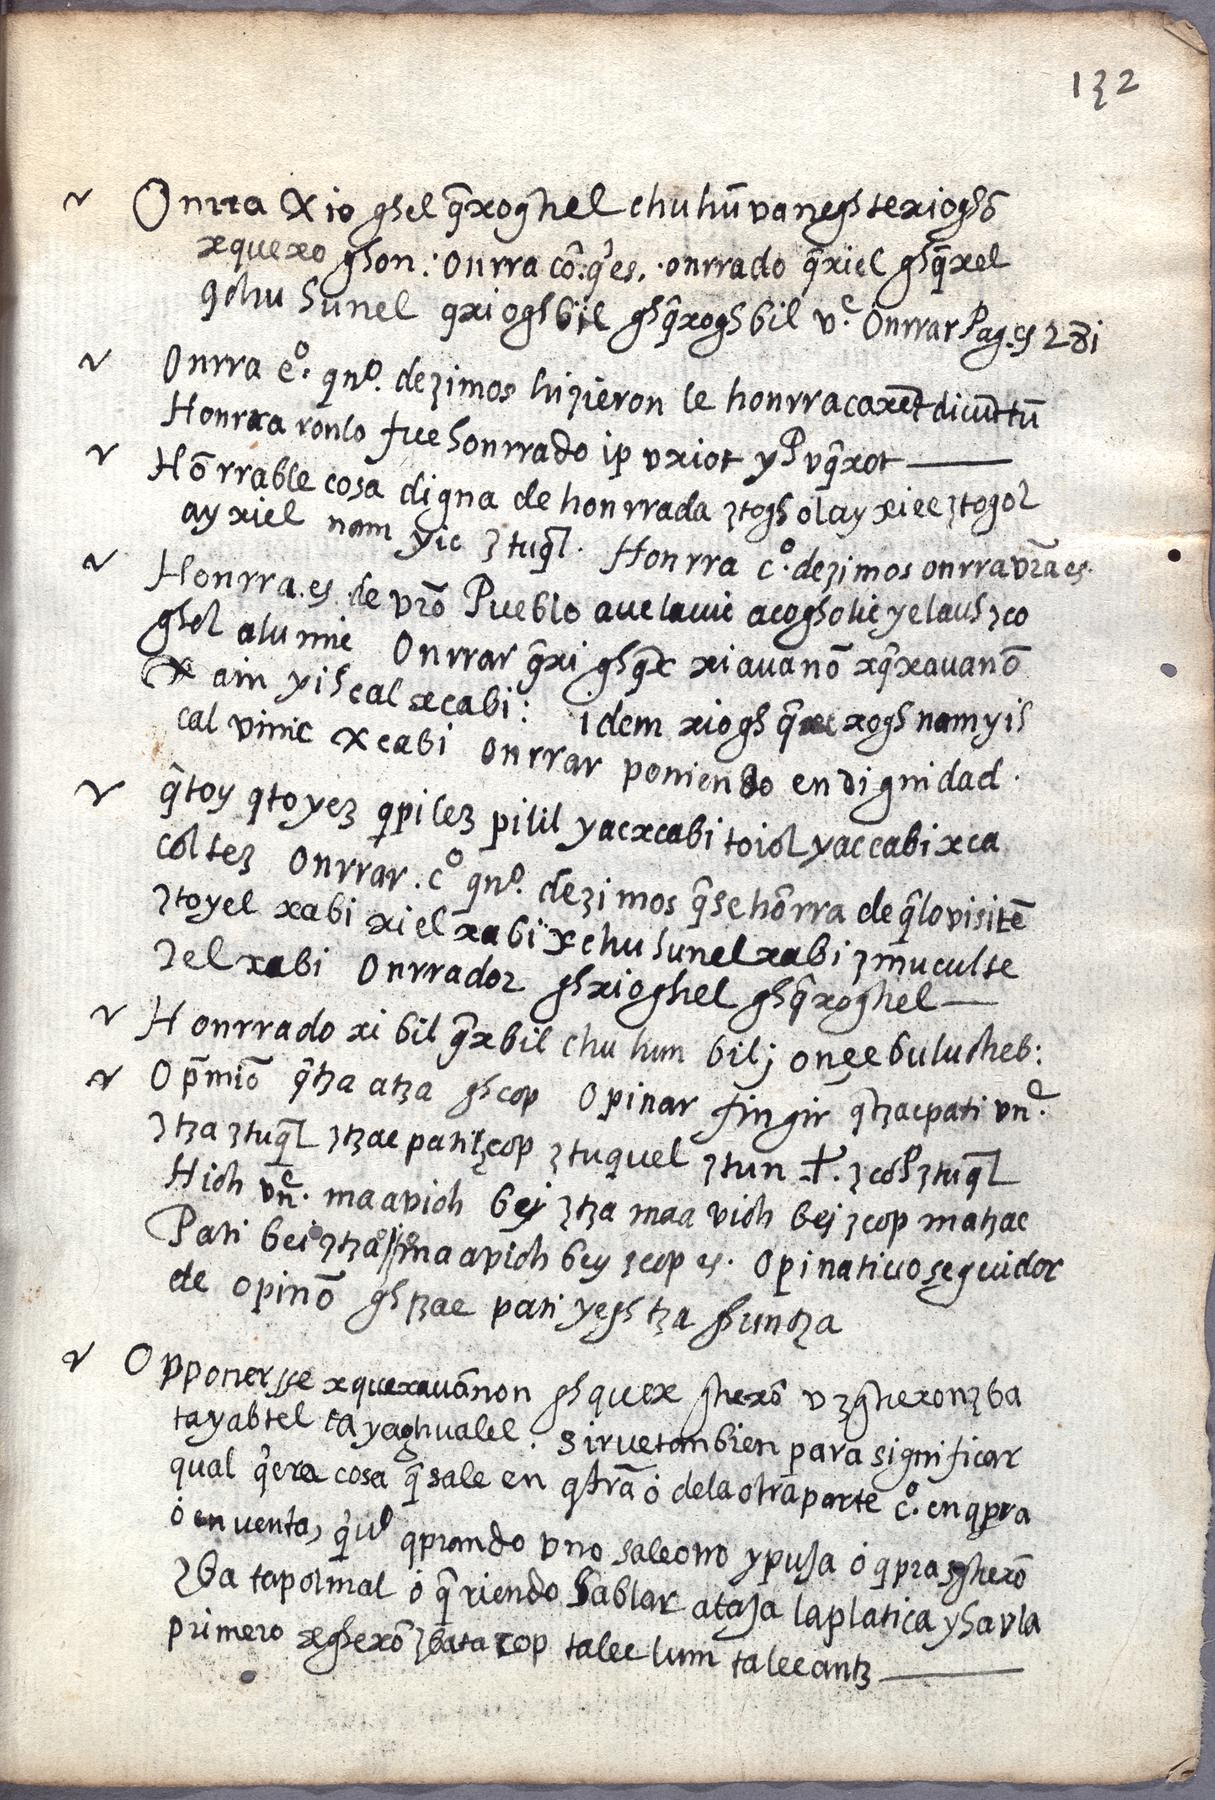 132
Onrra Xio ghel q̃xoghel chuhũvanegh texioghõ
xquexo ghon: onrra cõ. q̃ es. onrrado q̃xiel ghq̃xel
qchu hunel qxioghbil ghq̃xoghbil vᵉ. Onrrar Pag. es 281
Onrra cº. qnº. dezimos hizieron le honrra caxet dicunt tũ
Honrra ronlo fue honrrado ip vxiot yP vq̃xot
Hõrrable cosa digna de honrrada ztogh olay xiee ztogol
ay xiel nam yic ztuq̃l. Honrra cº. dezimos onrra vr̃a es.
Honrra. es de vr̃o Pueblo avelauic acogholic yelauh zco
ghol alumic Onrrar q̃xi ghq̃x xiavanõ xq̃xavanõ
X ain yih cal xcabi: idem xiogh q̃ xogh namyih
cal vinic X cabi Onrrar poniendo en dignidad.
q̃toy qtoyez qpilez pilil yacxcabi toiol yaccabixca
coltez Onrrar. cº qnº. dezimos q̃ se hõrra de q̃ lo visitẽ
ztoyel xabi xiel xabi X chu hunel xabi zmuculte
zel xabi Onrrador ghxioghel ghq̃xoghel
Honrrado xi bil q̃xbil chu hun bil; onee bulucheb:
Op̃miõ q̃tza atza ghcop Opinar fingir q̃tzaepati vnᵉ.
ztza ztuq̃l ztzae pati zcop ztuquel ztun †. zcoP ztuq̃l
Hich vñᵉ. maavich bej ztza maa vich bej zcop matzac
Pati bei ztza maavich bey zcop es. Opinativo seguidor
de opinõ gh tzae pati yegh tza ghuntza
Opponersse xquexauãnon gh quex ghexõ vzghexonzba
tayabtel ta yaghualel. Sirve tanbien para significar
qual q̃era cosa q̃ sale en qtrã ó dela otra parte cº. en qpra
ó en venta, q̃ul qprando vno sale otro y puja ó qpra xghexõ
zba tapolmal ó q̃riendo hablar ataja la platica y havla
primero xghexõ zbata cop talec lum talecantz